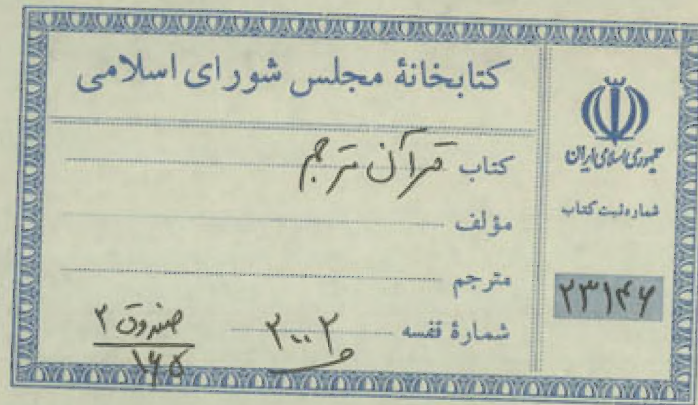 کتابخانهٔ مجلس شورای اسلامی
کتاب قرآن مترجم
مؤلف
مترجم
شمارهٔ قفسه ۳۰۰۲
صندوق ۲
۱۶۵
جمهوری اسلامی ایران
شماره ثبت کتاب
۲۳۱۴۶